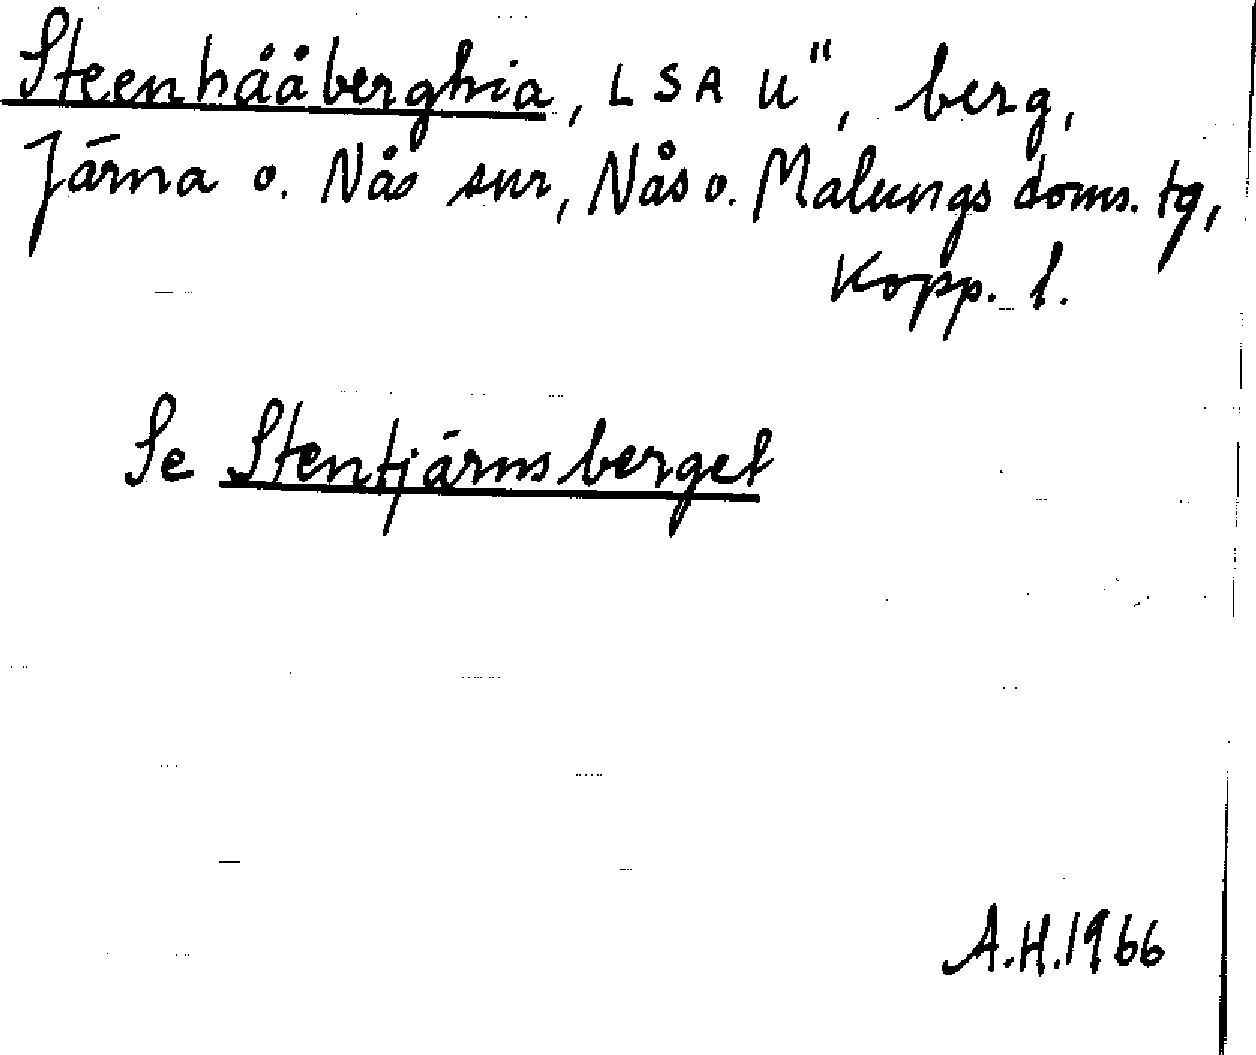 Steenhååberghia, LSA U", berg,
Järna o. Nås snr, Nås o. Malungs doms. tg,
Kopp. l.
Se Stentjärnsberget
A.H.1966